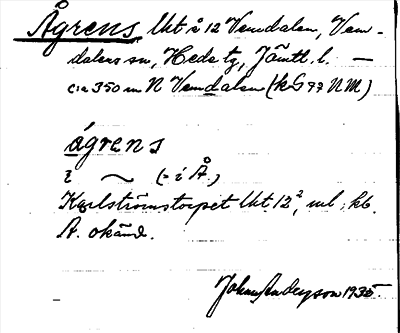 Ågrens lht å 12 Vemdalen, Vem-
dalens sn, Hede tg, Jämtl. l. —
c:a 350 m N Vemdalen (kG 97 NM)
ágrens
i ~ (= i Å.)
Karlströmstorpet lht. 12², enl. kb.
Å. okänd.
John Andersson 1935.